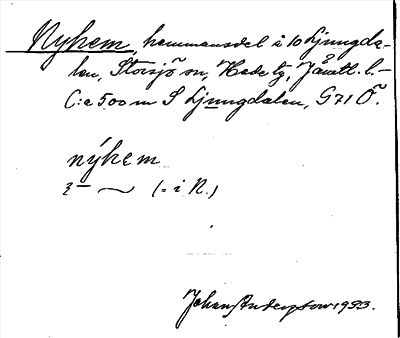 Nyhem, hemmansdel i 10 Ljungda-
len, Storsjö sn, Hede tg, Jämtl. l. –
C:a 500 m S Ljungdalen, G71 Ö.
nýhem
ꝛ– ⁓ (= i N.)
Johan Anderson 1933.